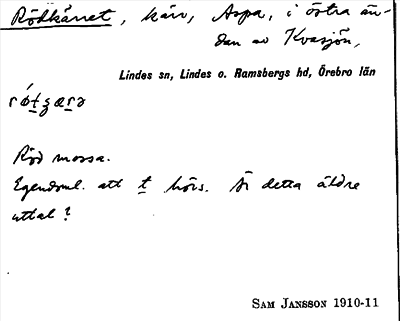 Rödkärret, kärr, Aspa, i östra än-
dan av Kvasjön,
Lindes sn, Lindes o. Ramsbergs hd, Örebro län
Röd mossa.
Egendoml. att t hörs. Är detta äldre
uttal?
SAM JANSSON 1910-11